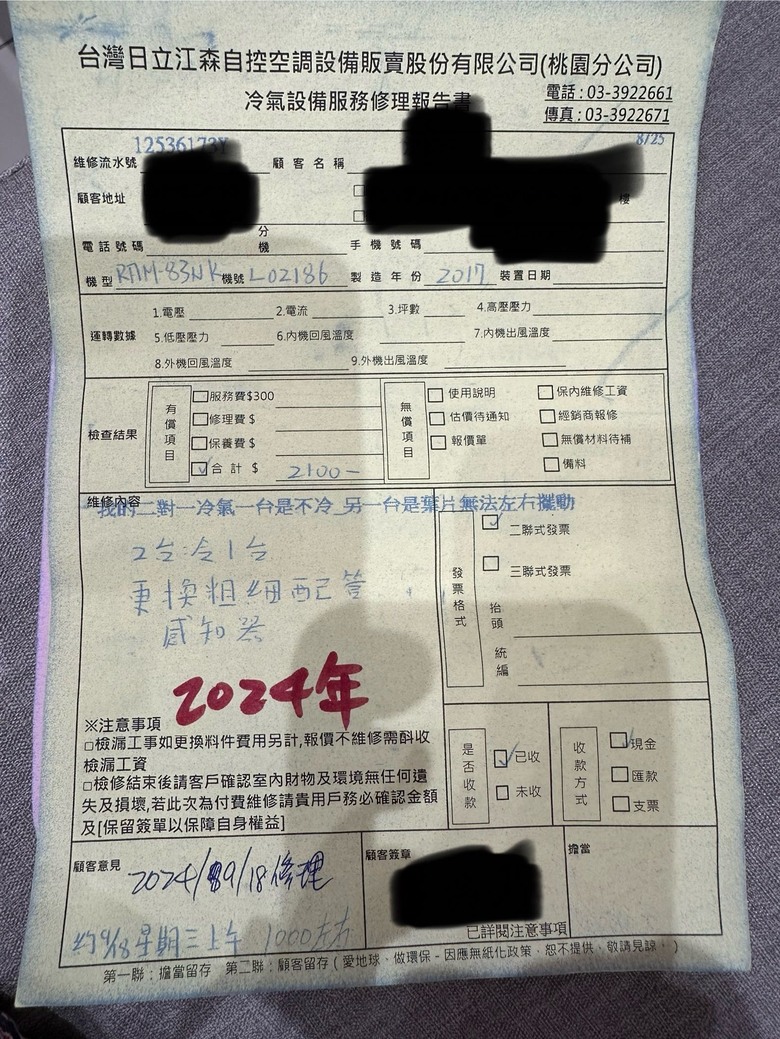 台灣日立江森自控空調設備販賣股份有限公司(桃園分公司)
冷氣設備服務修理報告書
電話:03-3922661
傳真:03-3922671
12536173Y
8/25
維修流水號 顧客名稱
顧客地址 樓
電話號碼 分機 手機號碼
機型 RAM-83NK 機號 L02186 製造年份 2017 裝置日期
運轉數據
1.電壓 2.電流 3.坪數 4.高壓壓力
5.低壓壓力 6.內機回風溫度 7.內機出風溫度
8.外機回風溫度 9.外機出風溫度
檢查結果
有償項目
□服務費$300
□修理費$
□保養費$
☑合計 $ 2100-
無償項目
□使用說明 □保內維修工資
□估價待通知 □經銷商報修
□報價單 □無償材料待補
□備料
維修內容
我的二對一冷氣一台是不冷_另一台是葉片無法左右擺動
2台冷1台
更換粗細配管
感知器
2024年
發票格式
☑二聯式發票
□三聯式發票
抬頭
統編
※注意事項
□檢漏工事如更換料件費用另計,報價不維修需酌收
檢漏工資
□檢修結束後請客戶確認室內財物及環境無任何遺
失及損壞,若此次為付費維修請貴用戶務必確認金額
及[保留簽單以保障自身權益]
是否收款
☑已收
□未收
收款方式
☑現金
□匯款
□支票
顧客意見
2024/9/18修理
約9/18星期三上午 1000左右
顧客簽章
已詳閱注意事項
擔當
第一聯:擔當留存 第二聯:顧客留存(愛地球、做環保-因應無紙化政策、恕不提供、敬請見諒、)